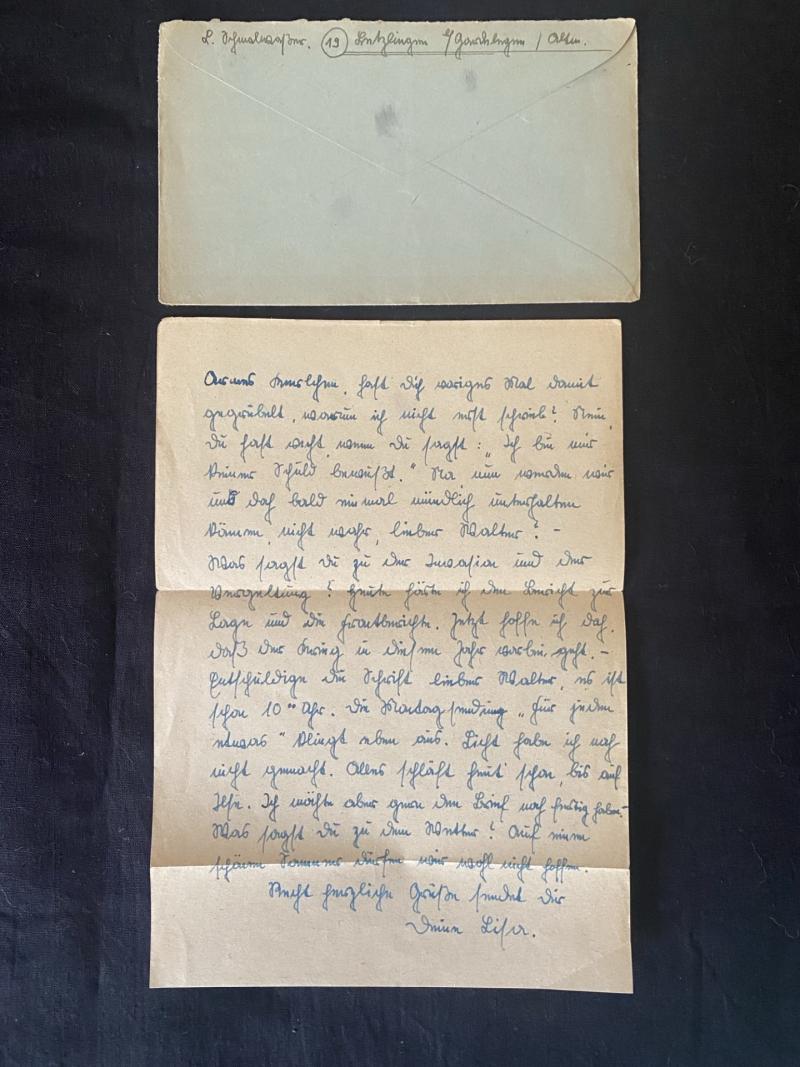 L. Schmalwaßer. (19) Letzlingen b/Gardelegen / Altm.
Armes Kerlchen, hast Dich voriges Mal damit
gegrübelt, warum ich nicht erst schrieb? Nein,
Du hast recht, wenn Du sagst: „Ich bin mir
keiner Schuld bewußt." Na nun werden wir
uns doch bald einmal mündlich unterhalten
können, nicht wahr, lieber Walter? –
Was sagst Du zu der Invasion und der
Vergeltung? Heute hörte ich den Bericht zur
Lage und die Frontberichte. Jetzt hoffe ich doch,
daß der Krieg in diesem Jahr vorbei geht. –
Entschuldige die Schrift lieber Walter, es ist
schon 10⁰⁰ Uhr. Die Montagsendung „Für jeden
etwas" klingt eben aus. Licht habe ich noch
nicht gemacht. Alles schläft heut schon, bis auf
Ilse. Ich möchte aber gern den Brief noch fertig haben. –
Was sagst Du zu dem Wetter? Auf einen
schönen Sommer dürfen wir wohl nicht hoffen.
Recht herzliche Grüße sendet Dir
Deine Lisa.